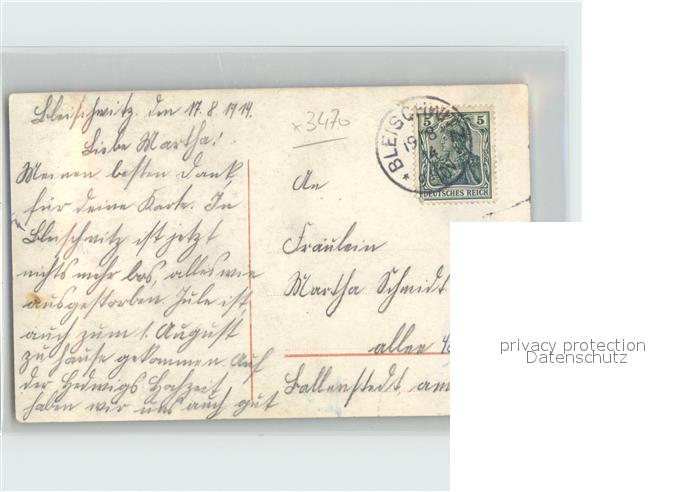 Bleischwitz, den 17.8.1914.
Liebe Martha!
Meinen besten Dank
für deine Karte. In
Bleischwitz ist jetzt
nichts mehr los, alles wie
ausgestorben. Jule ist
auch zum 1. August
zu hause gekommen. Auf
der Hedwigs Hochzeit
haben wir uns auch gut
x3470
BLEISCHWITZ
19 8
14
5 5
DEUTSCHES REICH
An
Fräulein
Martha Schmidt
allee
Ballenstedt am
privacy protection
Datenschutz